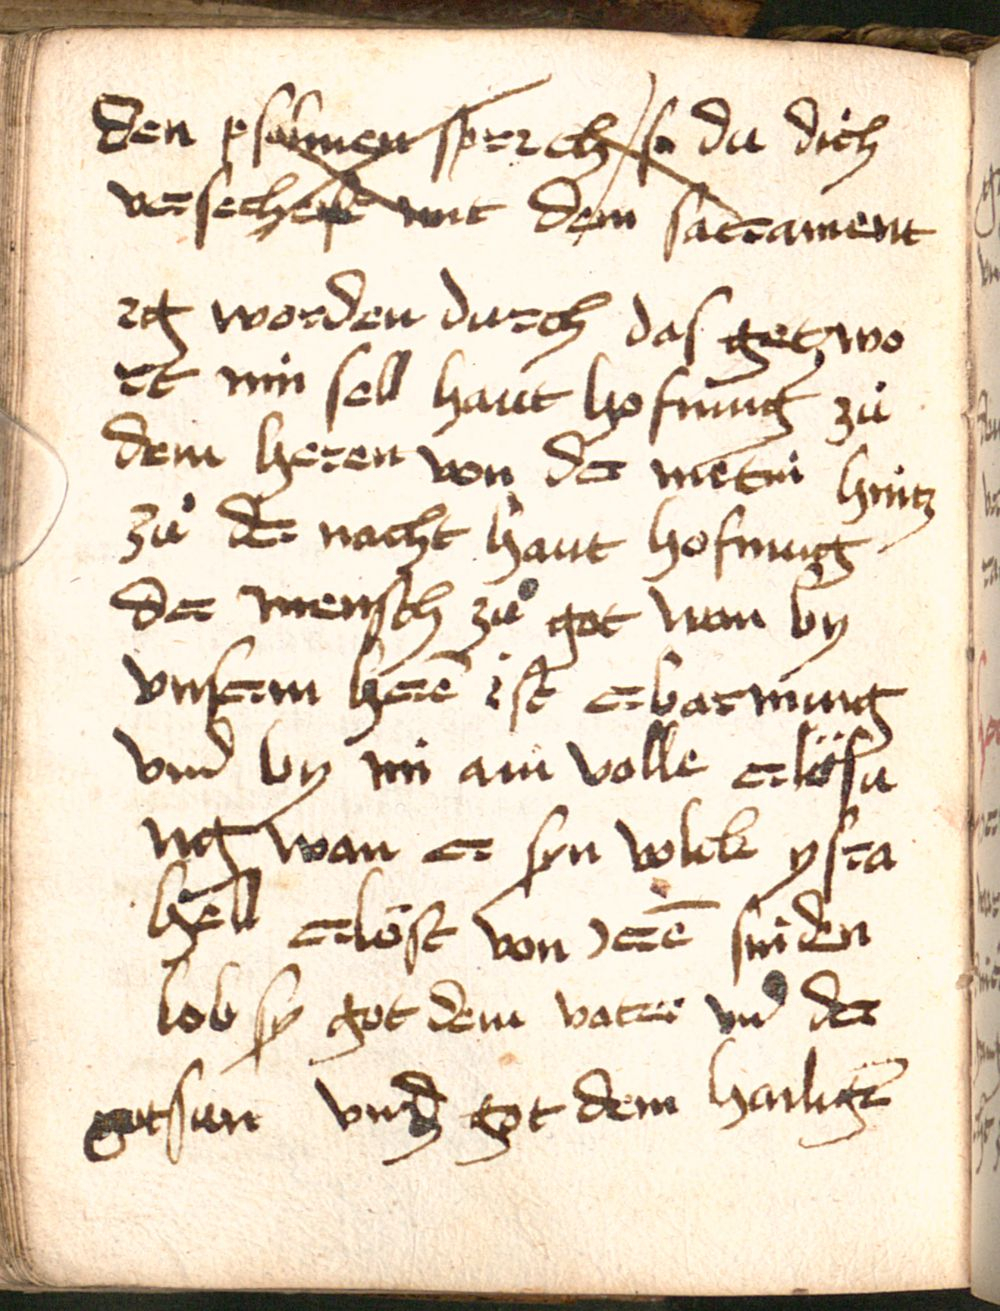 den psalmen sprech so du dich
versechest mit dem sacrament
rg worden durch das getzwo
rt min sell haut hofnung zů
dem heren von der metin hintz
zů der nacht haut hofnung
der mensch zů got wan by
vnserm herē ist erbarmung
vnd by im ain volle erlösu
ng wan er syn volck ysra
hell erlöst von jrē sünden
lob sy got dem vatter vnd der
gotsun vnd got dem hailigē